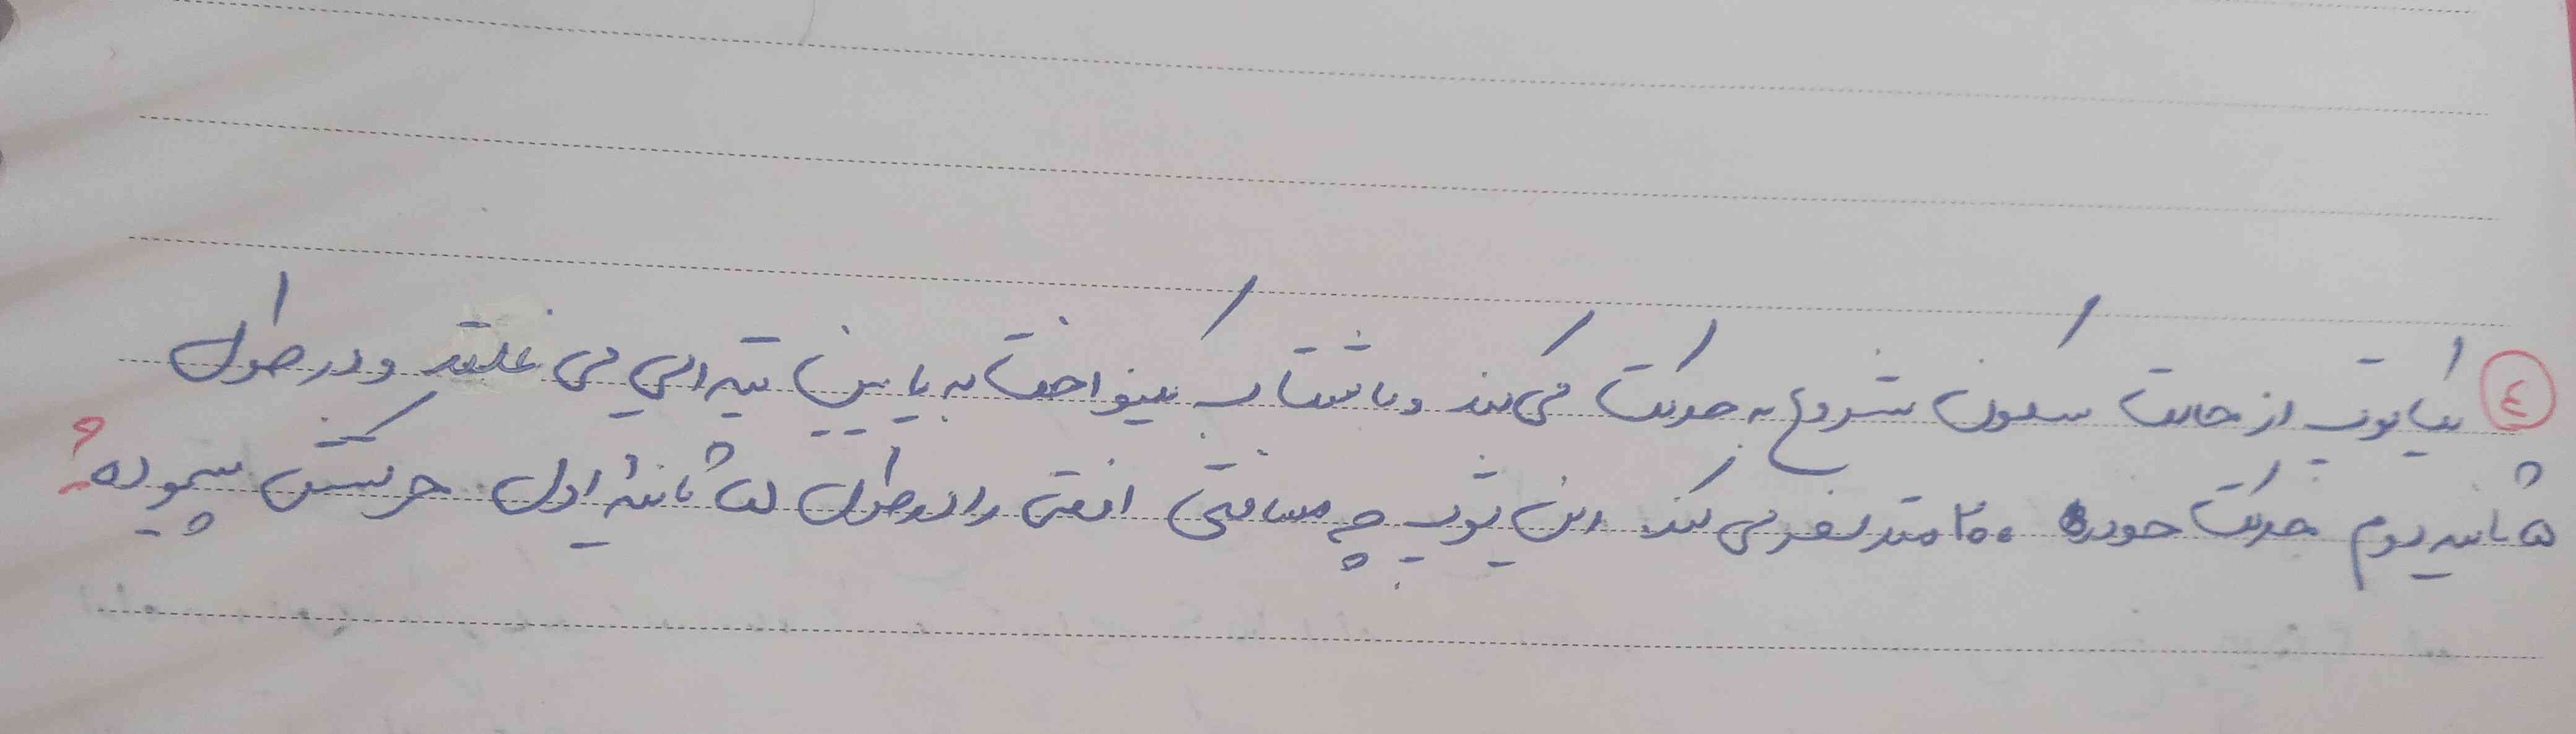 ④ یک توپ از حالت سکون شروع به حرکت می‌کند و با شتاب یکنواخت به پایین تپه‌ای می‌غلتد و در طول
۵ ثانیه دوم حرکت خود ۲۰۰ متر سفر می‌کند. این توپ چه مسافتی افقی را در طول ۵ ثانیهٔ اول حرکتش پیموده؟